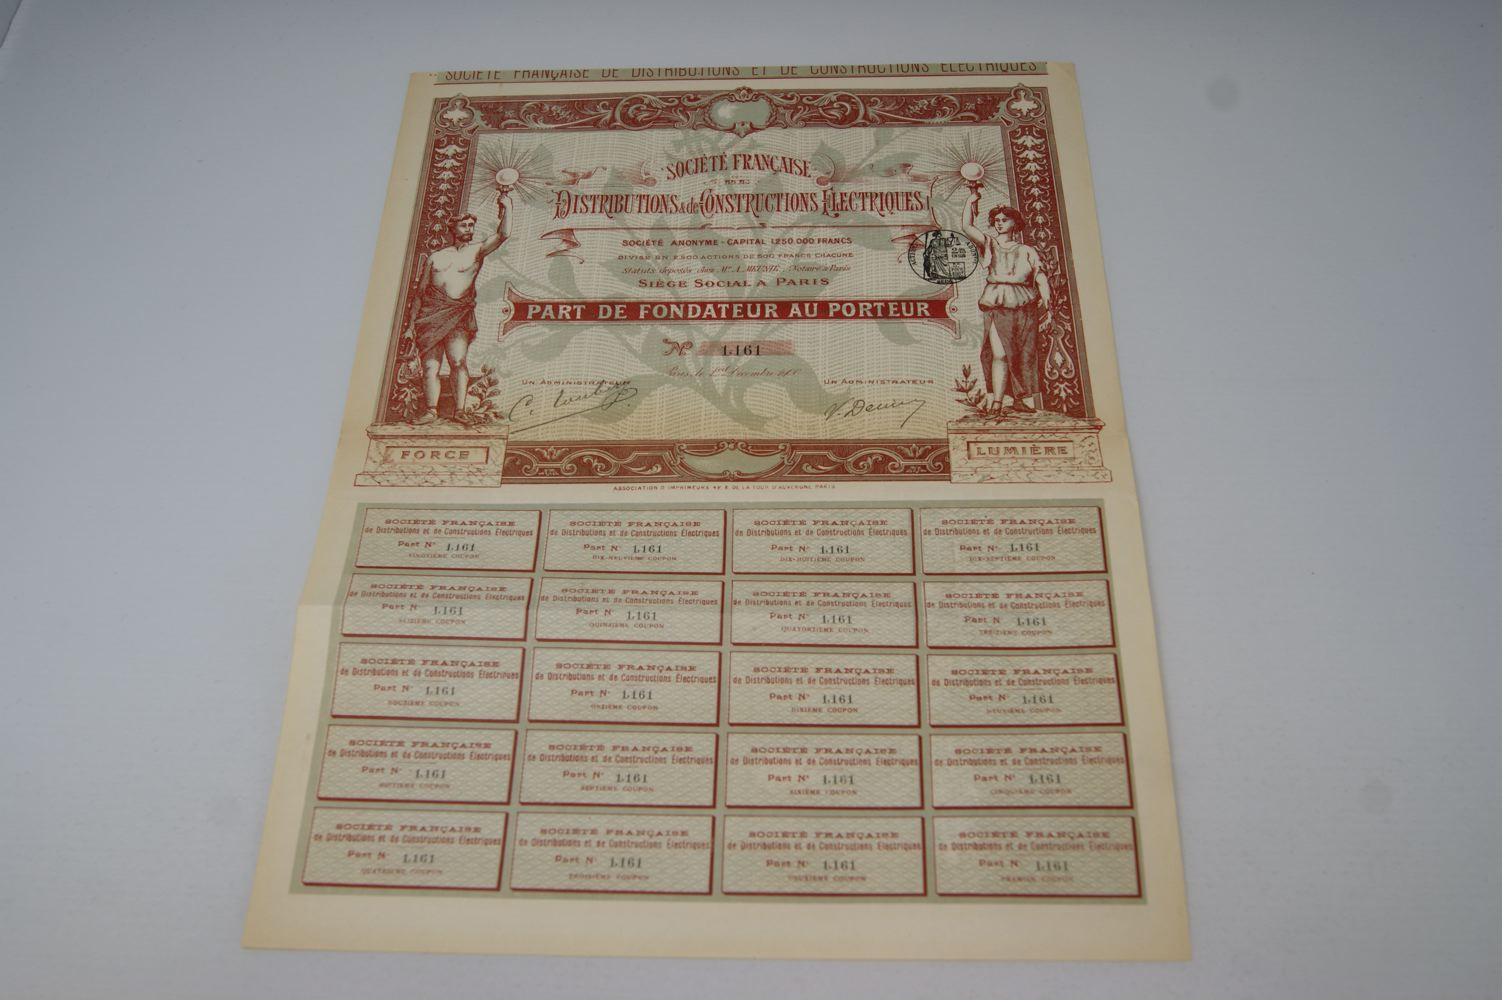 SOCIÉTÉ FRANÇAISE DE DISTRIBUTIONS ET DE CONSTRUCTIONS ÉLECTRIQUES
SOCIÉTÉ FRANÇAISE
DE
DISTRIBUTIONS & de CONSTRUCTIONS ÉLECTRIQUES
SOCIÉTÉ ANONYME - CAPITAL 1.250.000 FRANCS
DIVISÉ EN 2.500 ACTIONS DE 500 FRANCS CHACUNE
Statuts déposés chez Me A. Notaire à Paris
SIÈGE SOCIAL A PARIS
PART DE FONDATEUR AU PORTEUR
No 1.161
Paris, le 1er Décembre
UN ADMINISTRATEUR UN ADMINISTRATEUR
FORCE LUMIÈRE
ASSOCIATION D'IMPRIMEURS 49 R. DE LA TOUR D'AUVERGNE PARIS
SOCIÉTÉ FRANÇAISE
de Distributions et de Constructions Électriques
Part No 1.161
VINGTIÈME COUPON
SOCIÉTÉ FRANÇAISE
de Distributions et de Constructions Électriques
Part No 1.161
DIX-NEUVIÈME COUPON
SOCIÉTÉ FRANÇAISE
de Distributions et de Constructions Électriques
Part No 1.161
DIX-HUITIÈME COUPON
SOCIÉTÉ FRANÇAISE
de Distributions et de Constructions Électriques
Part No 1.161
DIX-SEPTIÈME COUPON
SOCIÉTÉ FRANÇAISE
de Distributions et de Constructions Électriques
Part No 1.161
SEIZIÈME COUPON
SOCIÉTÉ FRANÇAISE
de Distributions et de Constructions Électriques
Part No 1.161
QUINZIÈME COUPON
SOCIÉTÉ FRANÇAISE
de Distributions et de Constructions Électriques
Part No 1.161
QUATORZIÈME COUPON
SOCIÉTÉ FRANÇAISE
de Distributions et de Constructions Électriques
Part No 1.161
TREIZIÈME COUPON
SOCIÉTÉ FRANÇAISE
de Distributions et de Constructions Électriques
Part No 1.161
DOUZIÈME COUPON
SOCIÉTÉ FRANÇAISE
de Distributions et de Constructions Électriques
Part No 1.161
ONZIÈME COUPON
SOCIÉTÉ FRANÇAISE
de Distributions et de Constructions Électriques
Part No 1.161
DIXIÈME COUPON
SOCIÉTÉ FRANÇAISE
de Distributions et de Constructions Électriques
Part No 1.161
NEUVIÈME COUPON
SOCIÉTÉ FRANÇAISE
de Distributions et de Constructions Électriques
Part No 1.161
HUITIÈME COUPON
SOCIÉTÉ FRANÇAISE
de Distributions et de Constructions Électriques
Part No 1.161
SEPTIÈME COUPON
SOCIÉTÉ FRANÇAISE
de Distributions et de Constructions Électriques
Part No 1.161
SIXIÈME COUPON
SOCIÉTÉ FRANÇAISE
de Distributions et de Constructions Électriques
Part No 1.161
CINQUIÈME COUPON
SOCIÉTÉ FRANÇAISE
de Distributions et de Constructions Électriques
Part No 1.161
QUATRIÈME COUPON
SOCIÉTÉ FRANÇAISE
de Distributions et de Constructions Électriques
Part No 1.161
TROISIÈME COUPON
SOCIÉTÉ FRANÇAISE
de Distributions et de Constructions Électriques
Part No 1.161
DEUXIÈME COUPON
SOCIÉTÉ FRANÇAISE
de Distributions et de Constructions Électriques
Part No 1.161
PREMIER COUPON